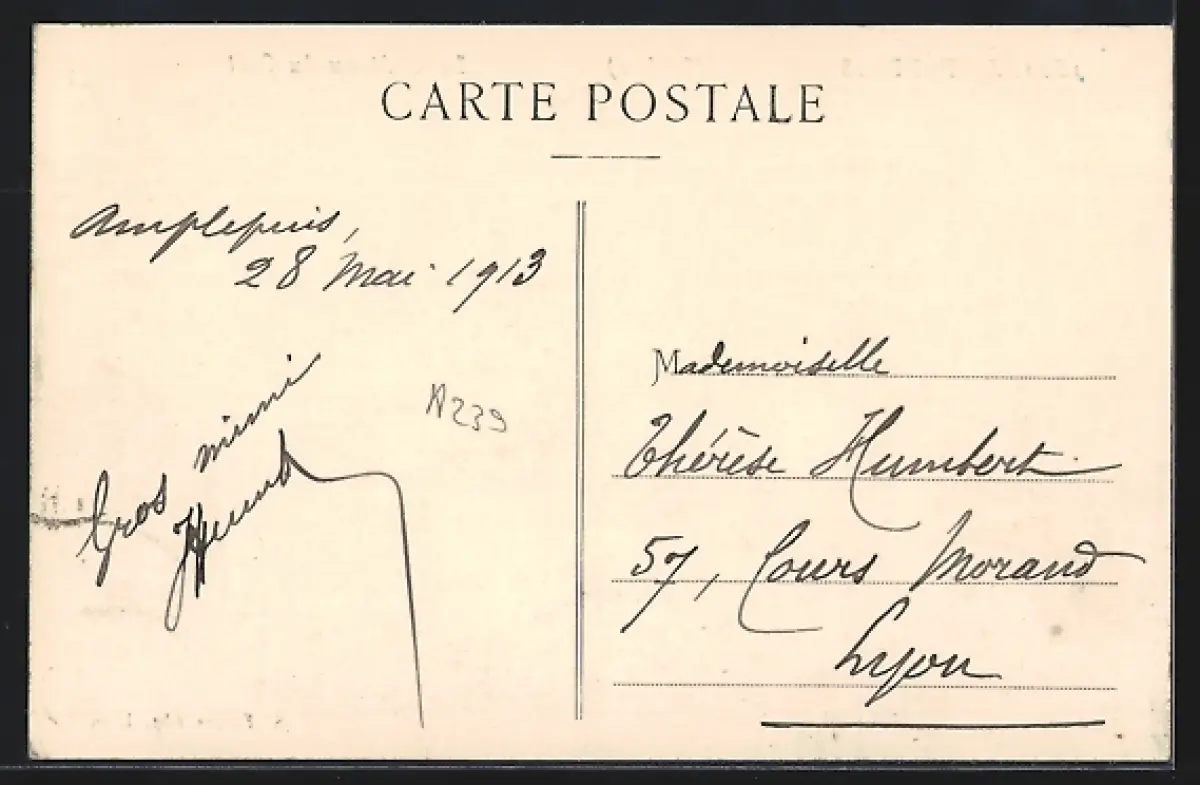 CARTE POSTALE
Amplepuis,
28 Mai 1913
Gros mimi
N239
Mademoiselle
Thérèse Humbert
57, Cours Morand
Lyon